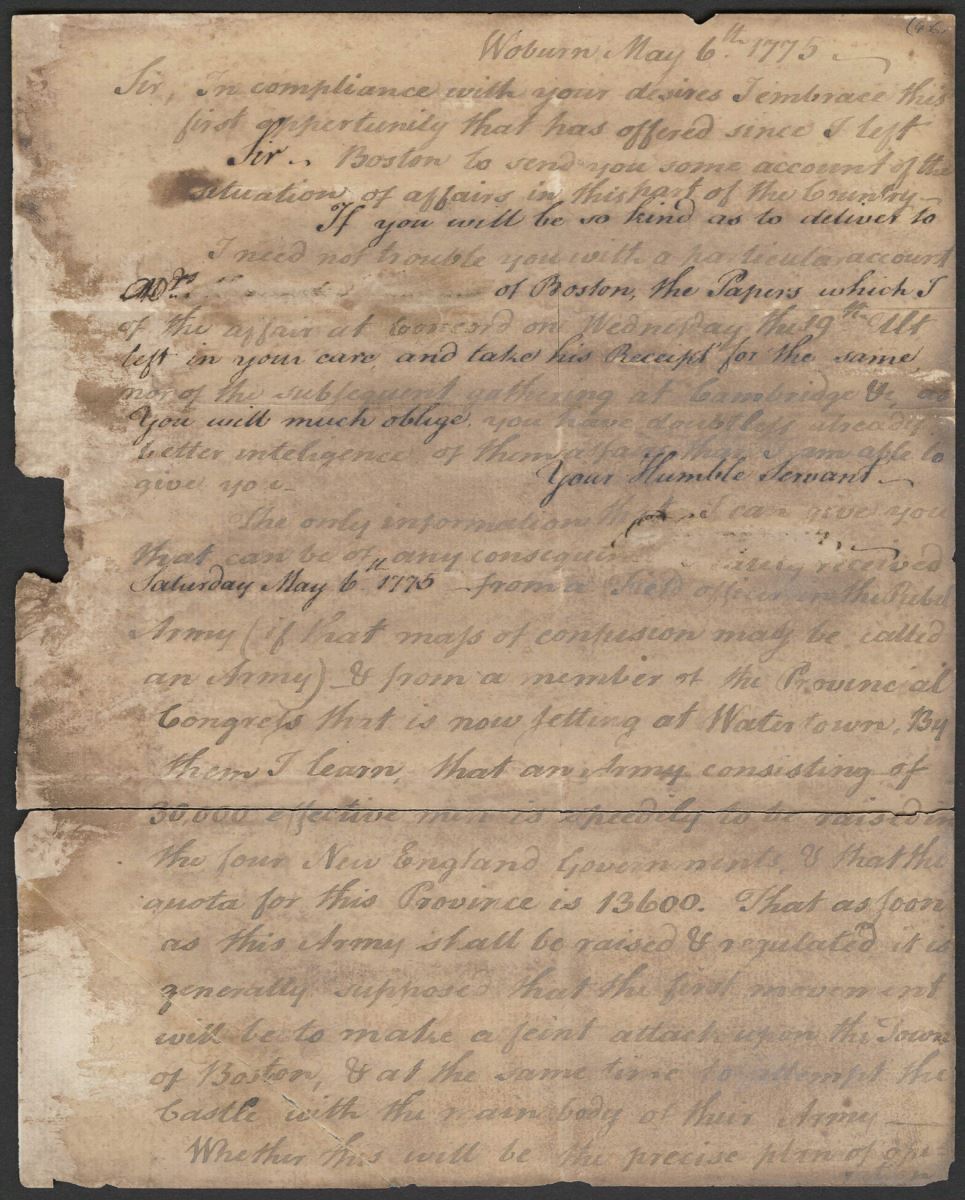 Woburn May 6th 1775
Sir, In compliance with your desires I embrace this
first oppertunity that has offered since I left
Sir Boston to send you some account of the
situation of affairs in this part of the Country
If you will be so kind as to deliver to
I need not trouble you with a particular account
of Boston, the Papers which I
of the affair at Concord on Wednesday the 19th Ult
left in your care, and take his Receipt for the same,
nor of the subsequent gathering at Cambridge &c, as
You will much oblige, you have doubtless already
better inteligence of them affairs than I am able to
Your Humble Servant
give you
The only information that I can give you
that can be of any consequence received
Saturday May 6th 1775 from a Field officer in the Rebel
Army (if that mass of confusion may be called
an Army) & from a member of the Provincial
Congress that is now setting at Watertown. By
them I learn, that an Army consisting of
30,000 effective men is speedily to be raised in
the four New England Governments, & that the
quota for this Province is 13600. That as soon
as this Army shall be raised & regulated it is
generally supposed that the first movement
will be to make a feint attack upon the Town
of Boston, & at the same time to attempt the
Castle with the main body of their Army
Whether this will be the precise plan of ope=